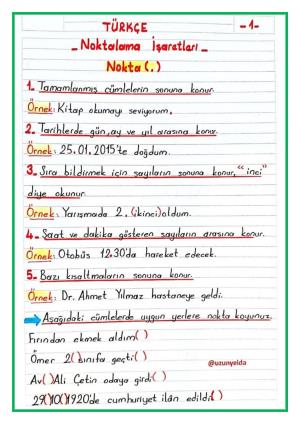 TÜRKÇE
-1-
- Noktalama İşaretleri -
Nokta (.)
1. Tamamlanmış cümlelerin sonuna konur.
Örnek: Kitap okumayı seviyorum.
2. Tarihlerde gün, ay ve yıl arasına konur.
Örnek: 25.01.2015'te doğdum.
3. Sıra bildirmek için sayıların sonuna konur, "inci"
diye okunur.
Örnek: Yarışmada 2. (ikinci) oldum.
4. Saat ve dakika gösteren sayıların arasına konur.
Örnek: Otobüs 12.30'da hareket edecek.
5. Bazı kısaltmaların sonuna konur.
Örnek: Dr. Ahmet Yılmaz hastaneye geldi.
Aşağıdaki cümlelerde uygun yerlere nokta koyunuz.
Fırından ekmek aldım( )
Ömer 2( )sınıfa geçti( )
@uzunyelda
Av( )Ali Çetin odaya girdi( )
29( )10( )1920'de cumhuriyet ilân edildi( )